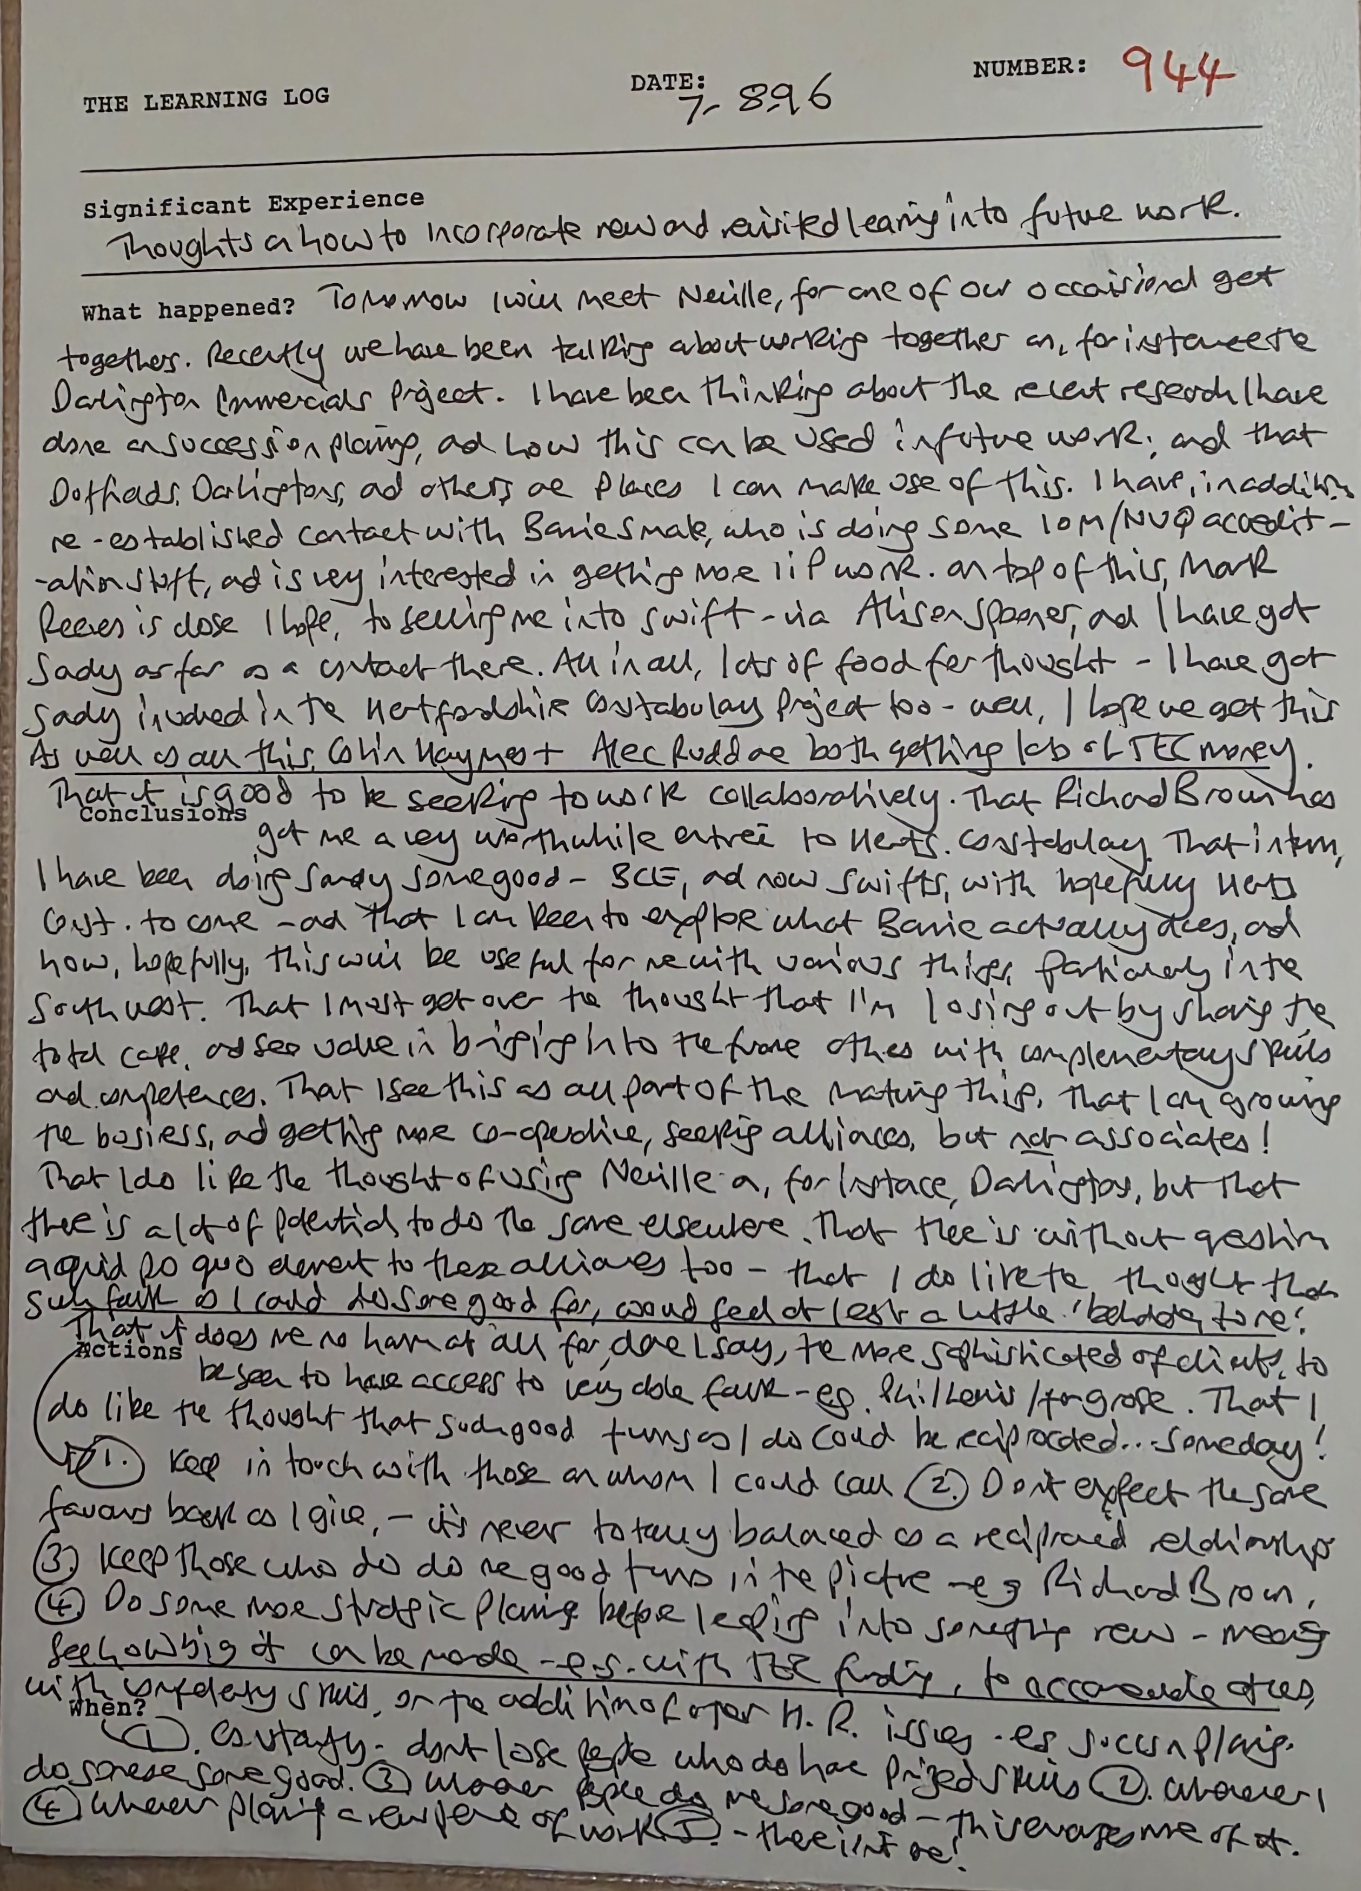 THE LEARNING LOG DATE: 7-8.96 NUMBER: 944
Significant Experience
Thoughts on how to incorporate new and revisited learning into future work.
What happened? Tomorrow I will meet Neville, for one of our occaisional get
togethers. Recently we have been talking about working together on, for instance the
Darlington Commercials Project. I have been thinking about the recent research I have
done on succession planning, and how this can be used in future work; and that
Duffields, Darlingtons, and others are places I can make use of this. I have, in addition
re-established contact with Barrie Smale, who is doing some IOM/NVQ accredit-
-ation stuff, and is very interested in getting more IIP work. On top of this, Mark
Reeves is close I hope, to selling me into Swift - via Alison Spooner, and I have got
Sandy as far as a contact there. All in all, lots of food for thought - I have got
Sandy involved in the Hertfordshire Constabulary Project too - well, I hope we get this
As well as all this, Colin Haymes + Alec Rudd are both getting lots of TEC money.
That it is good to be seeking to work collaboratively. That Richard Brown has
Conclusions
got me a very worthwhile entreé to Herts. Constabulary. That in turn,
I have been doing Sandy some good - BCE, and now Swifts, with hopefully Herts
Const. to come - and that I am keen to explore what Barrie actually does, and
how, hopefully, this will be useful for me with various things, particularly in the
South West. That I must get over the thought that I'm losing out by sharing the
total cake, and see value in bringing into the frame others with complementary skills
and competences. That I see this as all part of the maturing thing, that I am growing
the business, and getting more co-operative, seeking alliances, but not associates!
That I do like the thought of using Neville on, for instance, Darlingtons, but that
there is a lot of potential to do the same elsewhere. That there is without question
a quid pro quo element to these alliances too - that I do like the thought that
such folk as I could do some good for, would feel at least a little 'beholden' to me!
That it does me no harm at all for, dare I say, the more sophisticated of clients, to
Actions
be seen to have access to very able folk - eg. Phil Lewis / . That I
do like the thought that such good turns as I do could be reciprocated... someday!
1. Keep in touch with those on whom I could call 2. Don't expect the same
favours back as I give, - it's never totally balanced as a reciprocal relationship
3 Keep those who do do me good turns in the picture - eg Richard Brown.
4 Do some more strategic planning before leaping into something new - meaning
see how big it can be made - e.g. with TEC funding, to accommodate others,
with complementary skills, or the addition of other H.R. issues - eg succession planning.
When?
1. Constantly - don't lose people who do have prized skills 2. Whenever I
do someone some good. 3 Whenever people do me some good - this enrages me of it.
4 Whenever planning a new piece of work - there isn't one!